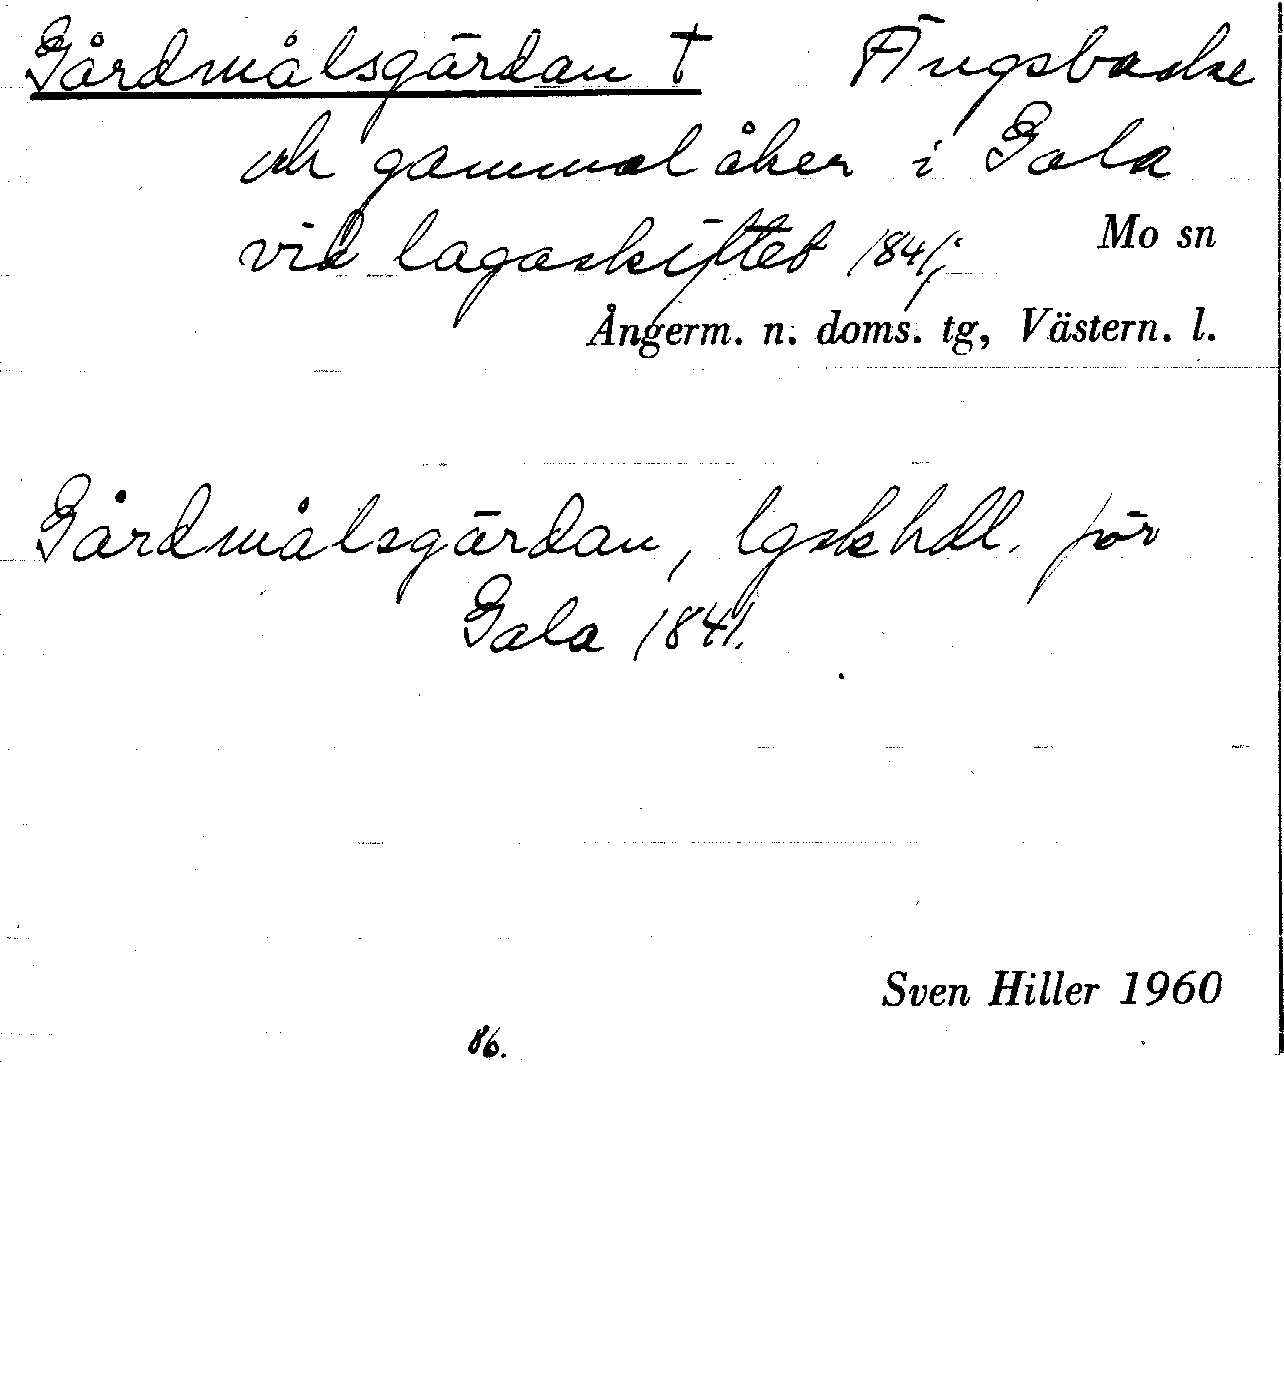 Gårdmålsgärdan † Ängsbacke
och gammal åker i Gala
vid lagaskiftet 1841;
Mo sn
Ångerm. n. doms. tg, Västern. l.
Gårdmålsgärdan, lgskhdl. för
Gala 1841.
Sven Hiller 1960
86.